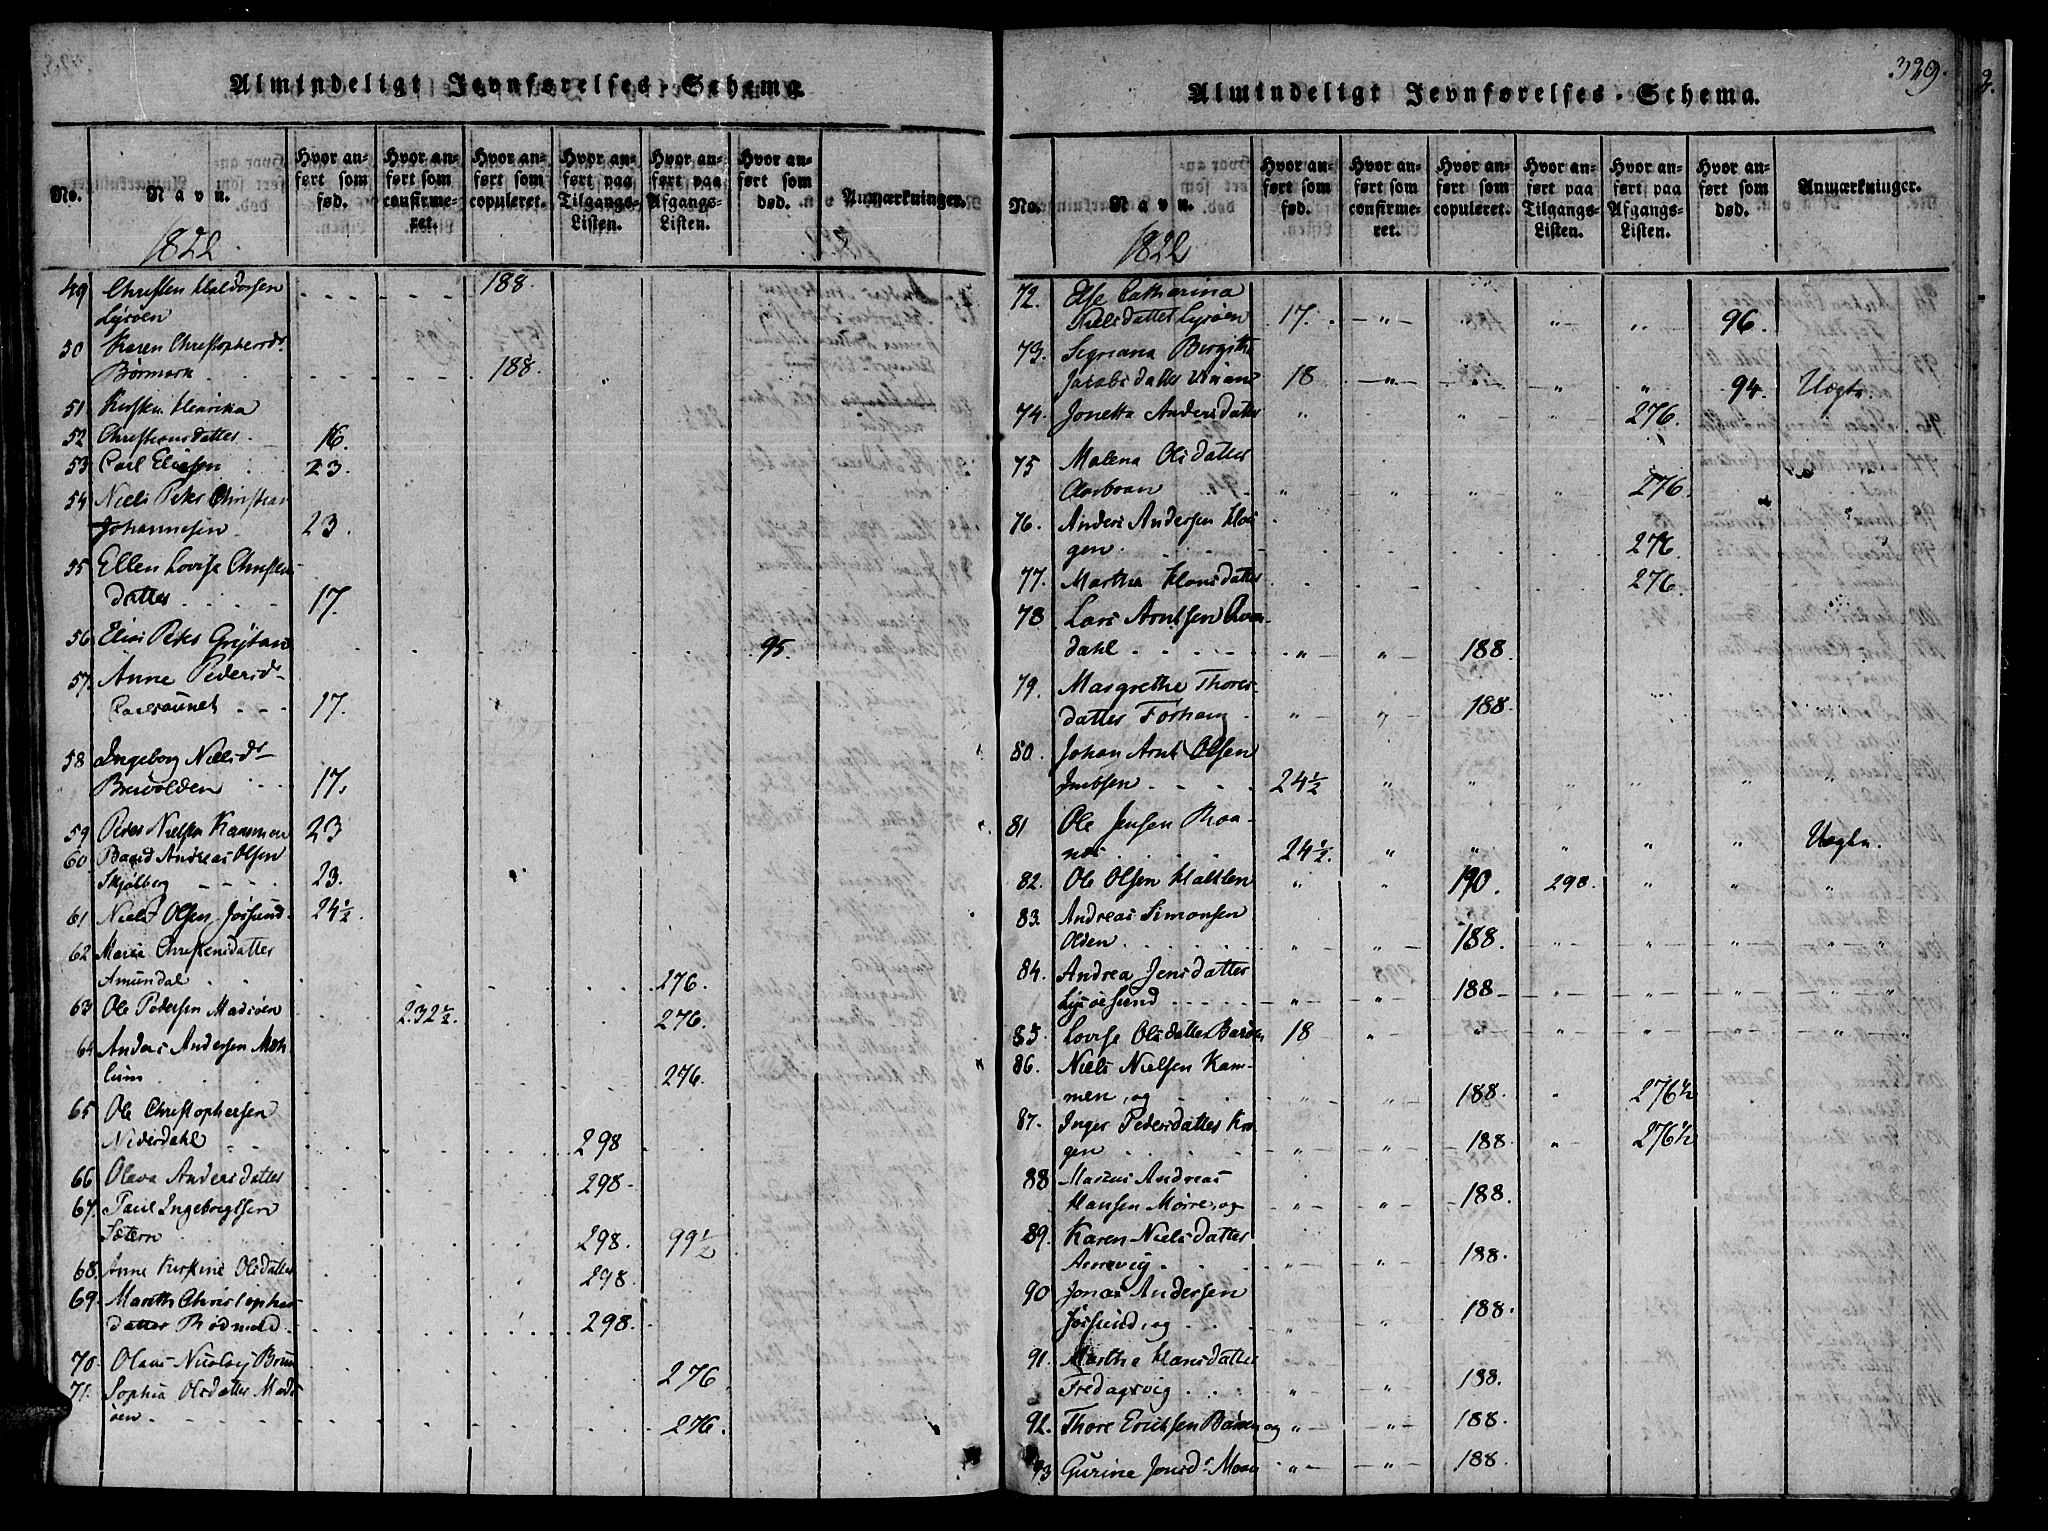 Almindeligt Jevnførelses-Schema.
No.
Navn.
Hvor anført som fød.
Hvor anført som confirmeret.
Hvor anført som copuleret.
Hvor anført paa Tilgangs-Listen.
Hvor anført paa Afgangs-Listen.
Hvor anført som død.
Anmærkninger.
1822
49 Christen Haldorsen
Lysøen 188.
50 Karen Christophersdr
Børmark 188.
51 Kirsten Henrika
52 Christiansdatter 16.
53 Carl Eliesen 23.
54 Niels Peter Christian
Johannesen 23.
55 Ellen Lovise Christens
datter 17.
56 Elias Peter 95.
57. Anne Pedersd
17.
58 Ingeborg Nielsdr
17.
59 Peder Nielsen Kammen 23
60. Andreas Olsen
Skjølberg 23.
61 Niels Olsen Jøssund 24½
62 Maria Christensdatter
Amundal 276.
63 Ole Pedersen Madsøen 232½. 276.
64 Anders Andersen Moh
lum 276.
65 Ole Christophersen
Nederdahl 298
66 Olava Andersdatter 298.
67. Paul Ingebrigtsen
Sætern 298. 99½
68. Anne Kirstine Olsdatter 298.
69. Mareth Christopher
datter Rødmeld 298.
70. Olaus Nicolay 276
71. Sophia Olsdatter Mads
øen 276.
329.
Almindeligt Jevnførelses-Schema.
No.
Navn.
Hvor anført som fød.
Hvor anført som confirmeret.
Hvor anført som copuleret.
Hvor anført paa Tilgangs-Listen.
Hvor anført paa Afgangs-Listen.
Hvor anført som død.
Anmærkninger.
1822
72. Else Catharina
Nielsdatter Lysøen 17. 96.
73. Birgitha
Jacobsdatter 18 94. Uægte.
74. Jonetta Andersdatter 276.
75 Malena Olsdatter
276.
76. Anders Andersen Hou
gen. 276.
77. Martha Hansdatter 276.
78 Lars Arntsen
dahl 188.
79. Margrethe Thores
datter Forhaug 188.
80. Johan Arnt Olsen
24½
81 Ole Jensen Roa
nes 24½. Uægte.
82. Ole Olsen 190. 298.
83. Andreas Simonsen
Olden 188.
84. Andrea Jensdatter
Lysøesund 188
85. Lovise Olsdatter 18
86. Niels Nielsen Kam
men, og 188. 276½
87. Inger Pedersdatter Kro
gen 188 276½
88 Marcus Andreas
Hansen Mørre, og 188.
89. Karen Nielsdatter
188.
90 Jonas Andersen
Jøssund, og 188.
91. Marthe Hansdatter
Fredagsvig 188.
92. Thore Erichsen og 188.
93 Gurine Jonsdr Moan 188.